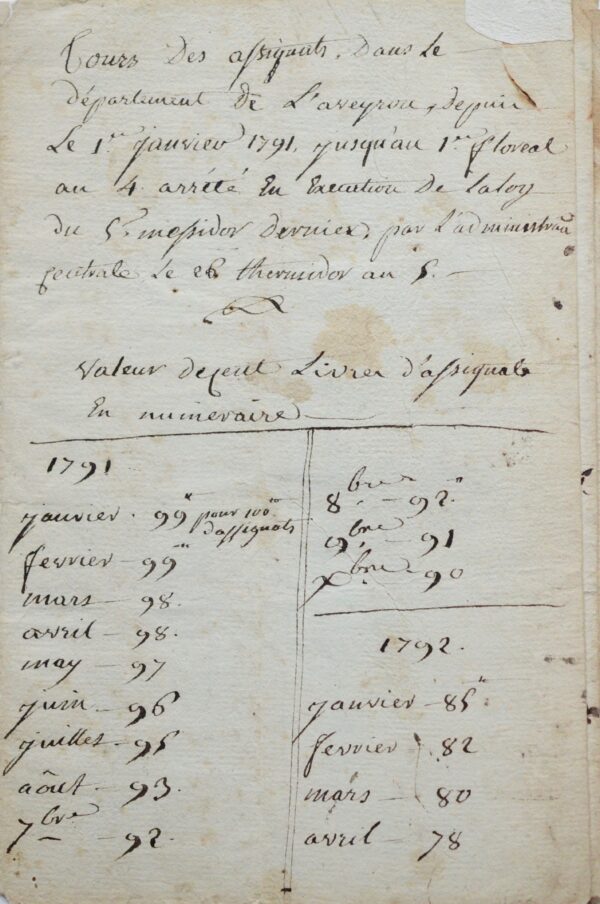 Cours Des assignats. Dans Le
département De L'aveyron, depuis
Le 1er janvier 1791, jusqu'au 1er floreal
an 4 arrété En Execution De la loy
du 5 messidor dernier, par L'administraon
centrale Le 26 thermidor an 5. —
Valeur de cent Livres d'assignats
En numeraire
1791
janvier. 99# pour 100#
d'assignats
fevrier — 99#
mars — 98.
avril — 98.
may — 97
juin — 96
juillet — 95
août — 93.
7bre — 92.
8bre — 92#
9bre — 91
xbre — 90
1792.
janvier — 85#
fevrier — 82
mars — 80
avril — 78